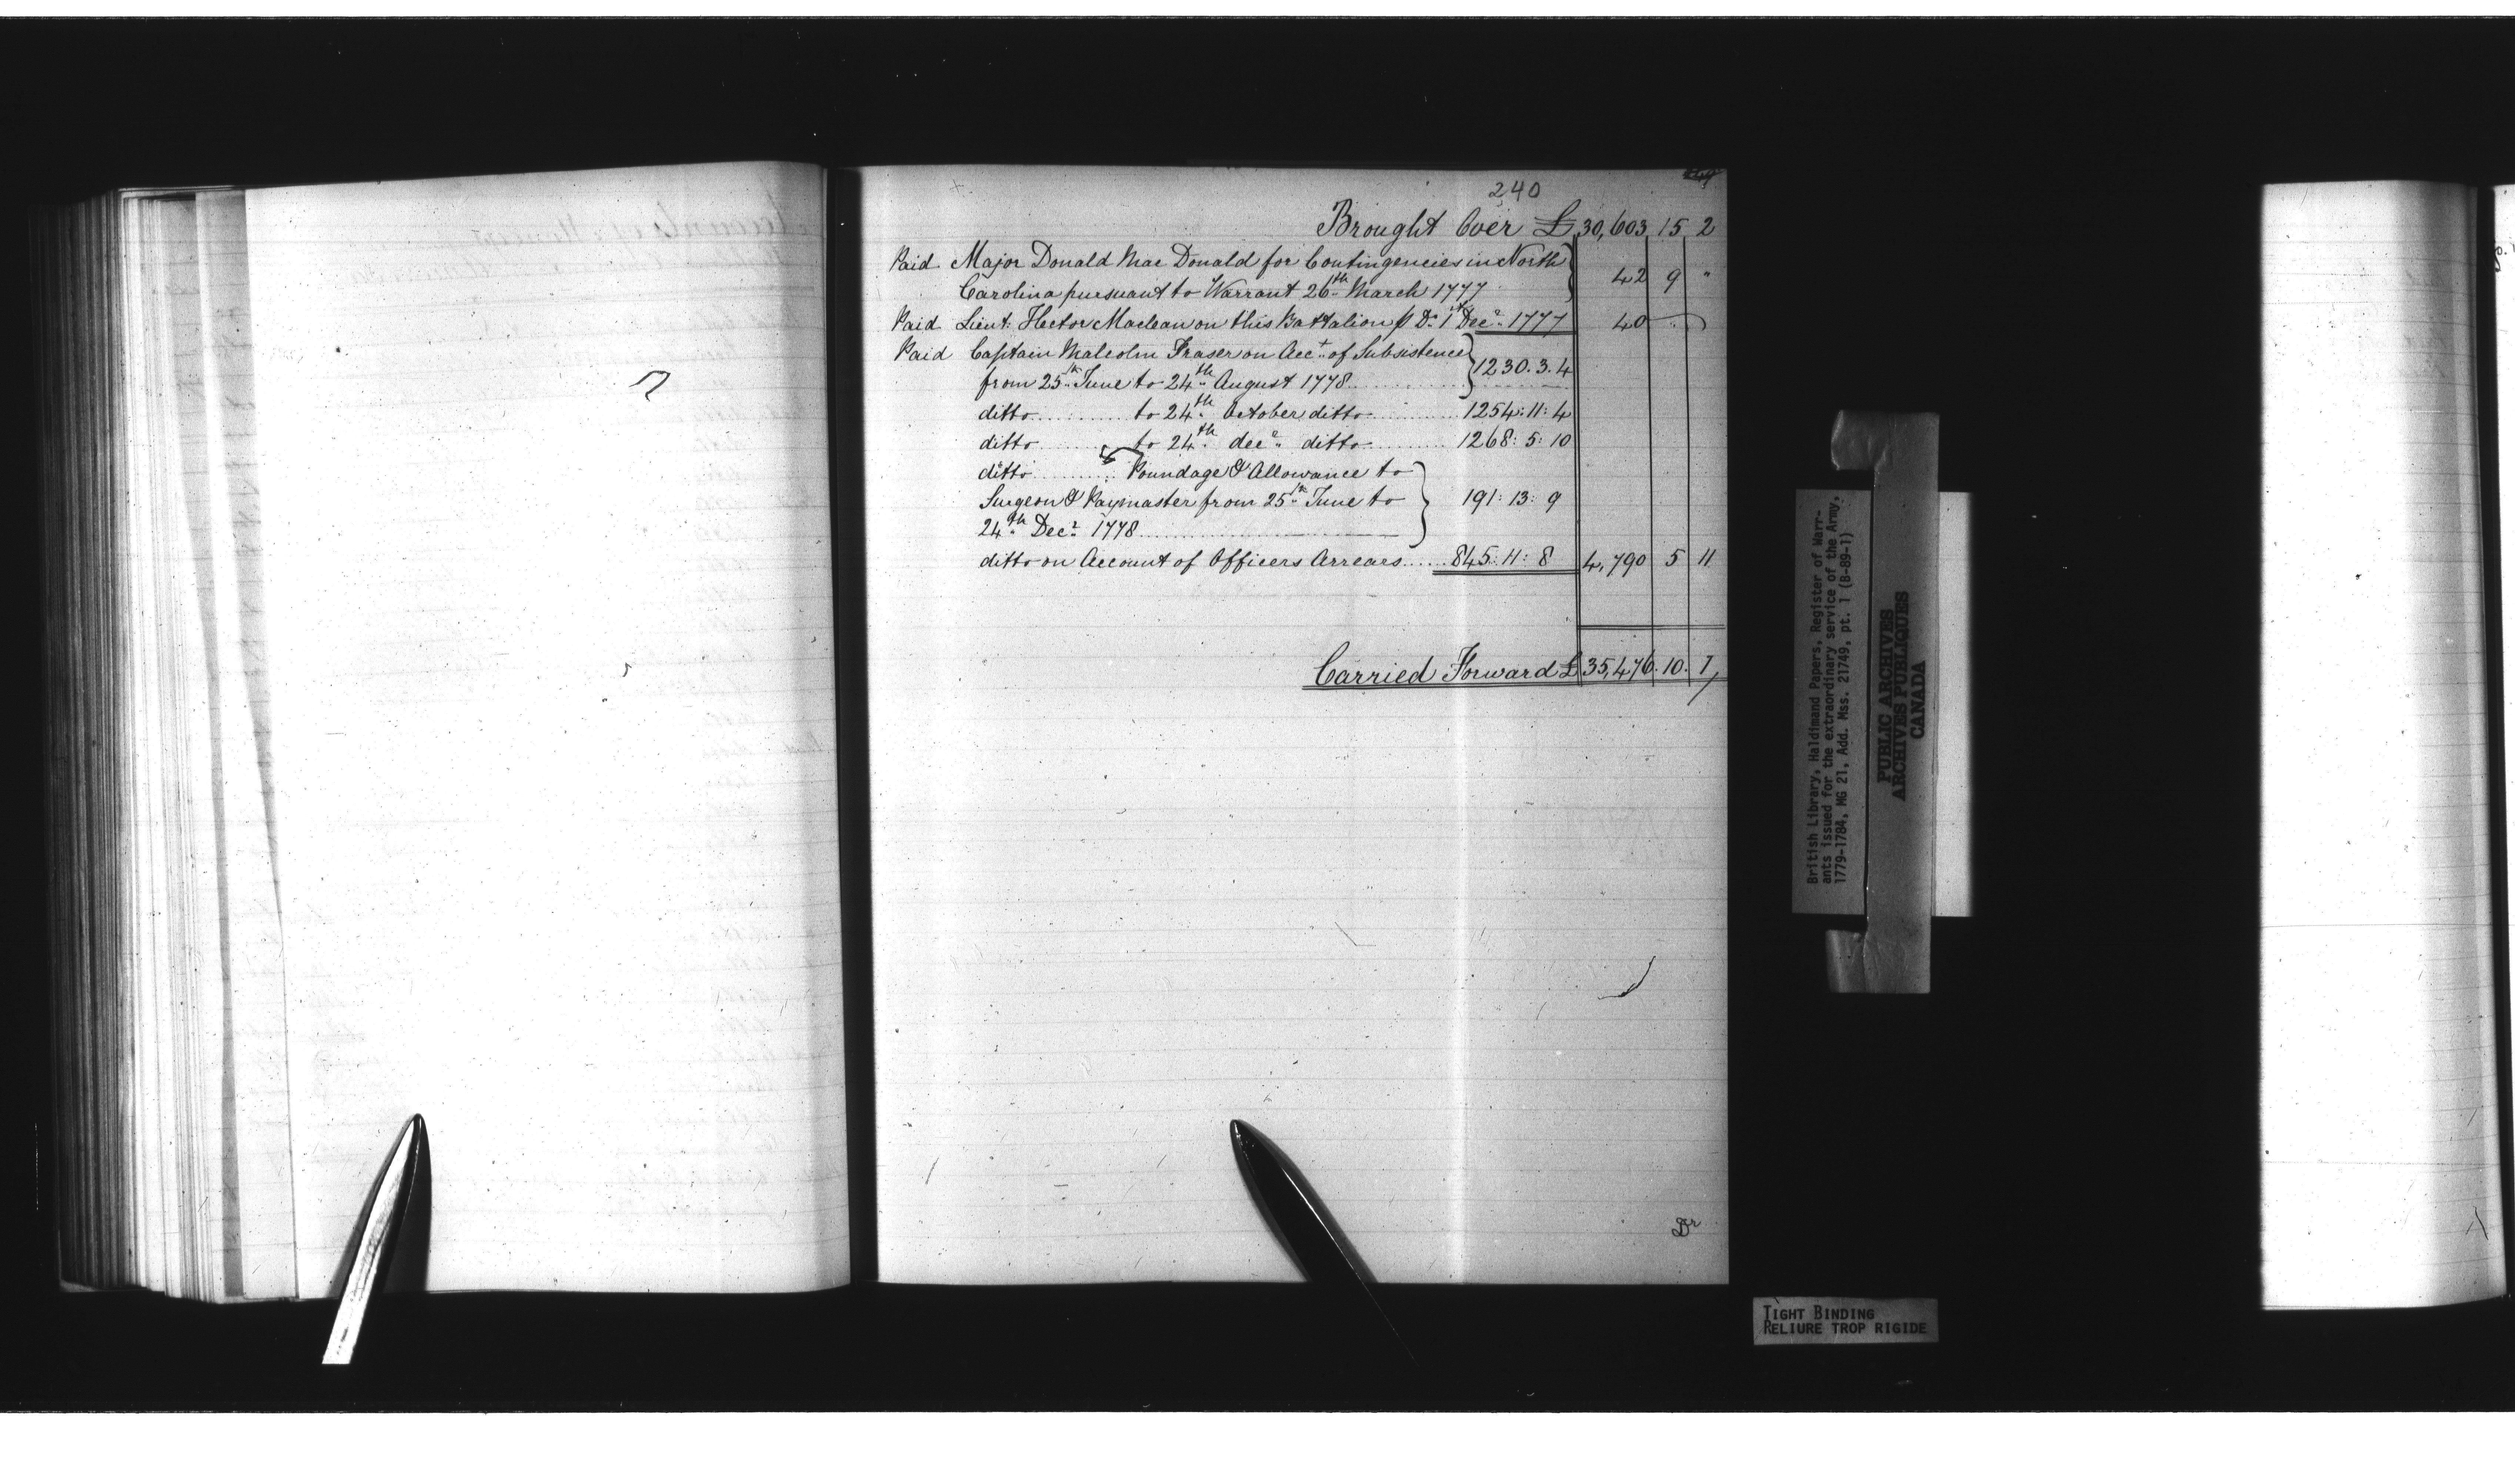 240
Brought Over £ 30,603 15 2
Paid Major Donald Mac Donald for Contingencies in North
Carolina pursuant to Warrant 26th March 1777 42 9 "
Paid Lieut: Hector Maclean on this Battalion p Do 1st Decr 1777 40
Paid Captain Malcolm Fraser on Acct of Subsistence
from 25th June to 24th August 1778 1230.3.4
ditto to 24th October ditto 1254:11:4
ditto to 24th decr ditto 1268:5:10
ditto Poundage & Allowance to
Surgeon & Paymaster from 25th June to 191:13:9
24th Decr 1778
ditto on Account of Officers Arrears 845:11:8 4,790 5 11
Carried Forward £ 35,476.10.1
Dr
British Library, Haldimand Papers, Register of Warr-
ants issued for the extraordinary service of the Army,
1779-1784, MG 21, Add. Mss. 21749, pt. 1 (B-89-1)
PUBLIC ARCHIVES
ARCHIVES PUBLIQUES
CANADA
TIGHT BINDING
RELIURE TROP RIGIDE